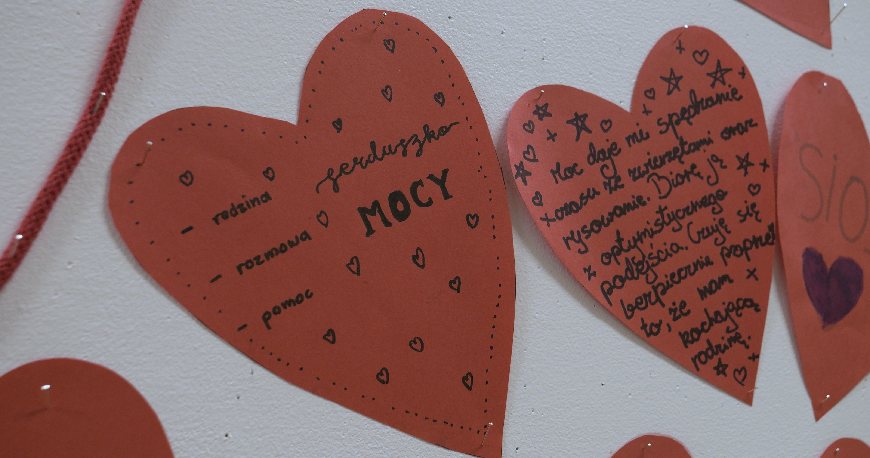 serduszko
MOCY
- rodzina
- rozmowa
- pomoc
Moc daje mi spędzanie
czasu ze zwierzętami oraz
rysowanie. Biorę ją
z optymistycznego
podejścia. Czuję się
bezpiecznie poprzez
to, że mam
kochającą
rodzinę.
Sio